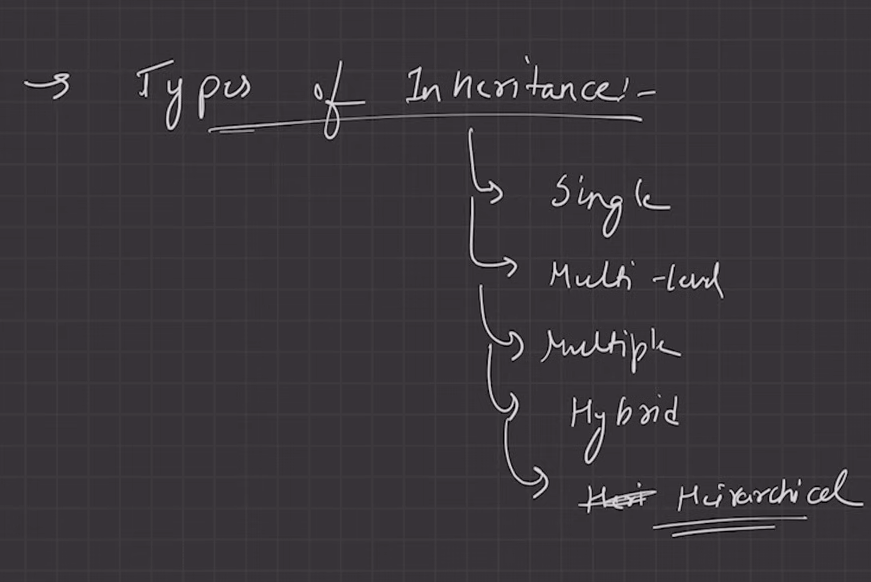 → Types of Inheritance:-
→ Single
→ Multi-level
→ Multiple
→ Hybrid
→ Heirarchical